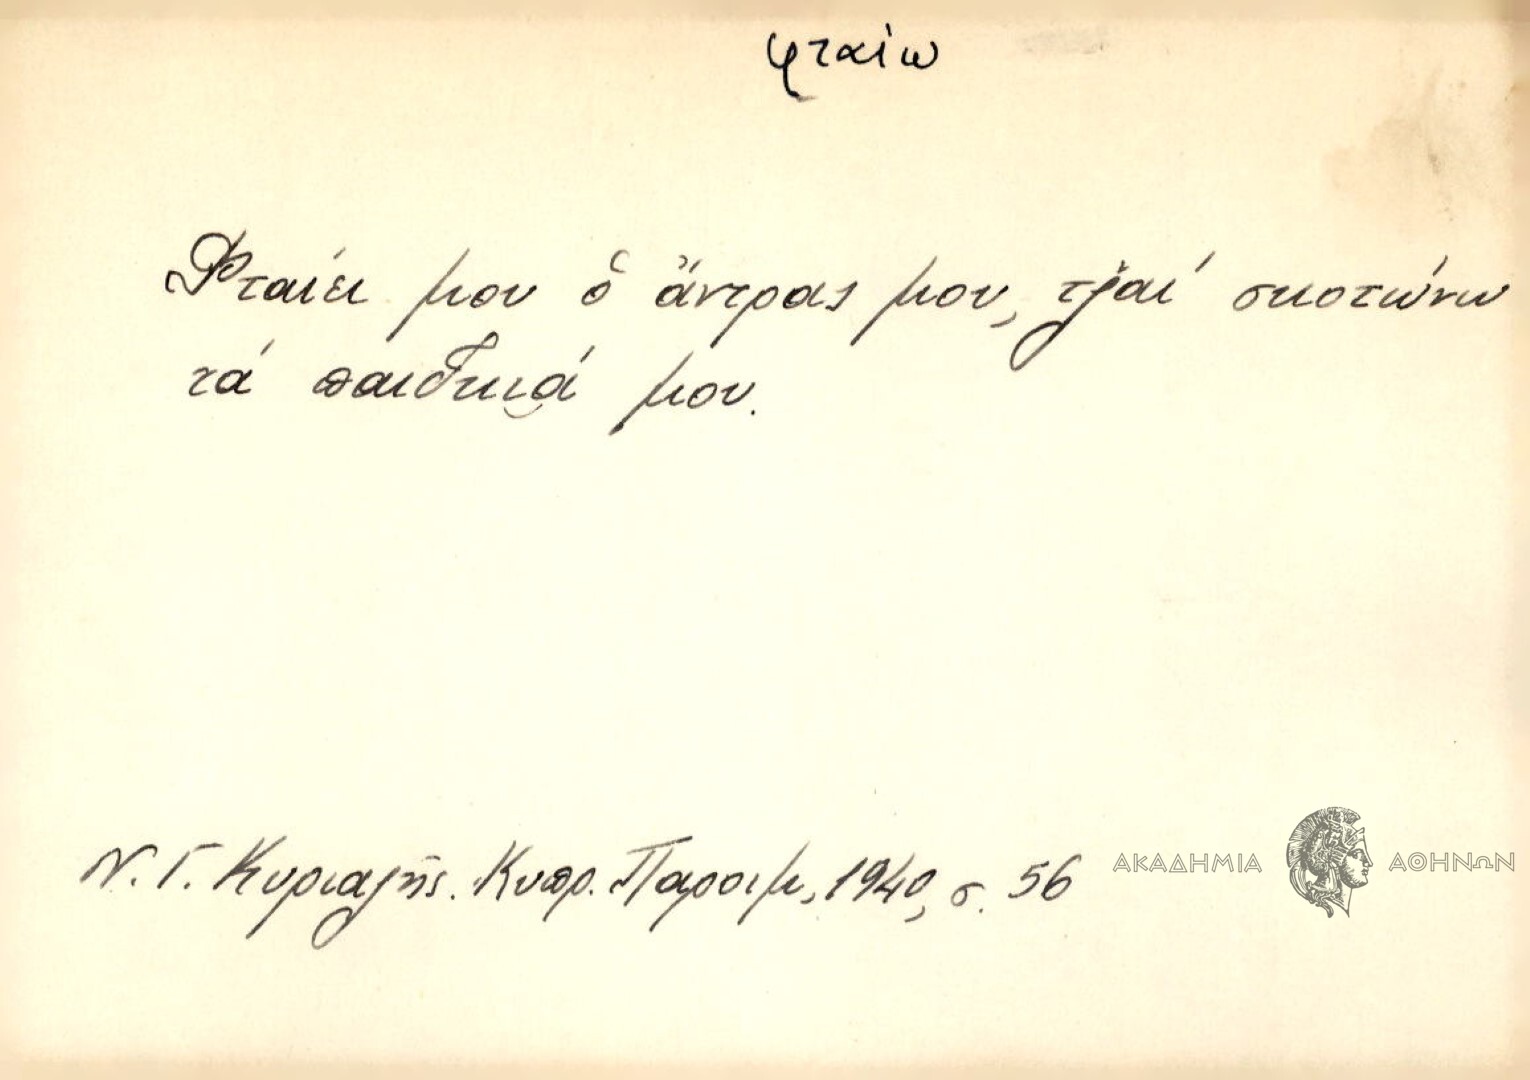 φταίω
Φταίει μου ὁ ἄντρας μου, τζ̌αί σκοτώνω
τά παιδκιά μου.
Ν. Γ. Κυριαζῆς. Κυπρ. Παροιμ, 1940, σ. 56
ΑΚΑΔΗΜΙΑ ΑΘΗΝΩΝ